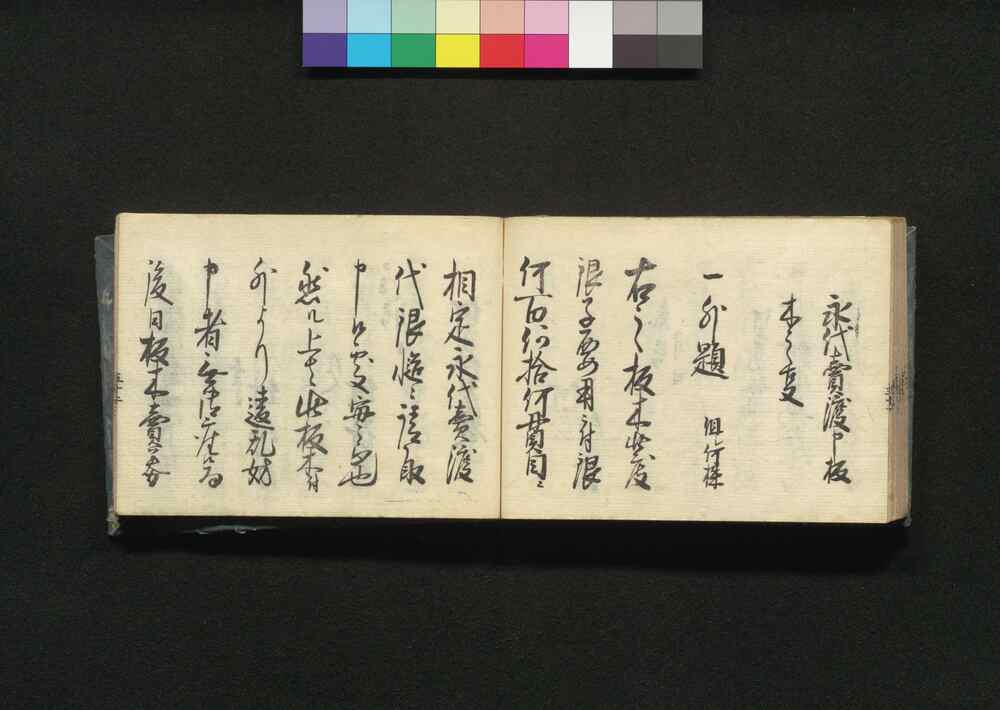 永代賣渡申板
木之事
一外題 但シ何様
右之板木此度
銀子要用ニ付銀
何百何拾何貫目ニ
相定永代賣渡
代銀慥ニ請取
申候処実正也
然ル上者此板木ニ付
外より違乱妨
申者無御座候為
後日板木賣券